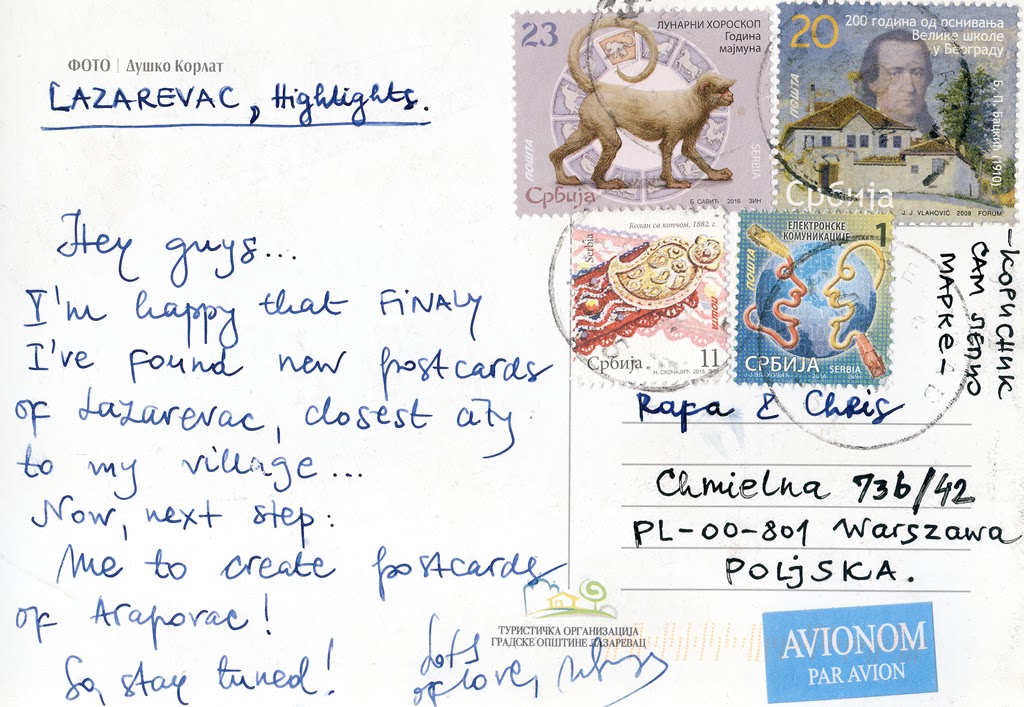 ФОТО | Душко Корлат
LAZAREVAC, Highlights.
Hey guys...
I'm happy that FINALY
I've found new postcards
of Lazarevac, closest city
to my village...
Now, next step:
Me to create postcards
of Arapovac!
So, stay tuned!
Lots
of love,
23
ЛУНАРНИ ХОРОСКОП
Година
мајмуна
ПОШТА
SERBIA
Србија
Б. САВИЋ 2016 ЗИН
20
200 година од оснивања
Велике школе
у Београду
ПОШТА
Б. П. Башић (1910)
Србија
J. J. VLAHOVIĆ 2008 FORUM
Колан са копчом, 1882. г.
Serbia
ПОШТА
Србија
11
ЕЛЕКТРОНСКЕ
КОМУНИКАЦИЈЕ
1
ПОШТА
СРБИЈА
SERBIA
-КОРИСНИК
САМ ЛЕПИО
МАРКЕ-
Rafa & Chris
Chmielna 73b/42
PL-00-801 Warszawa
POLjSKA.
ТУРИСТИЧКА ОРГАНИЗАЦИЈА
ГРАДСКЕ ОПШТИНЕ ЛАЗАРЕВАЦ
AVIONOM
PAR AVION